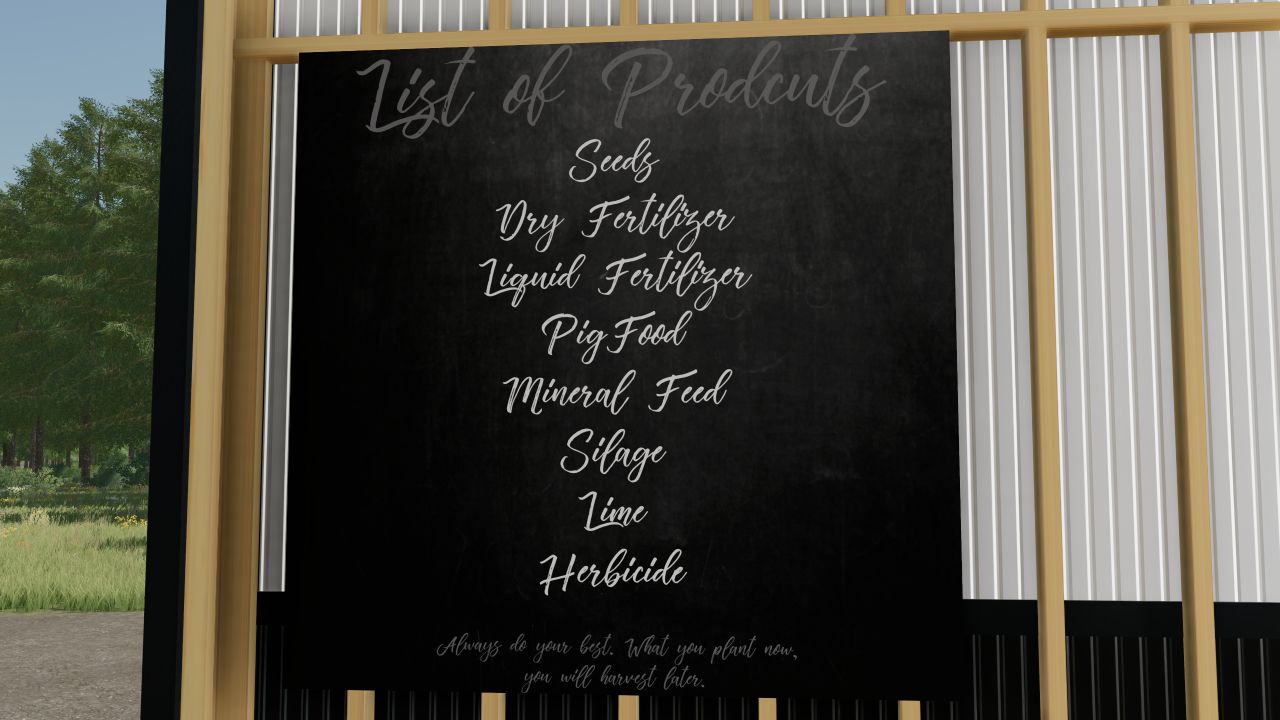 List of Prodcuts
Seeds
Dry Fertilizer
Liquid Fertilizer
PigFood
Mineral Feed
Silage
Lime
Herbicide
Always do your best. What you plant now,
you will harvest later.